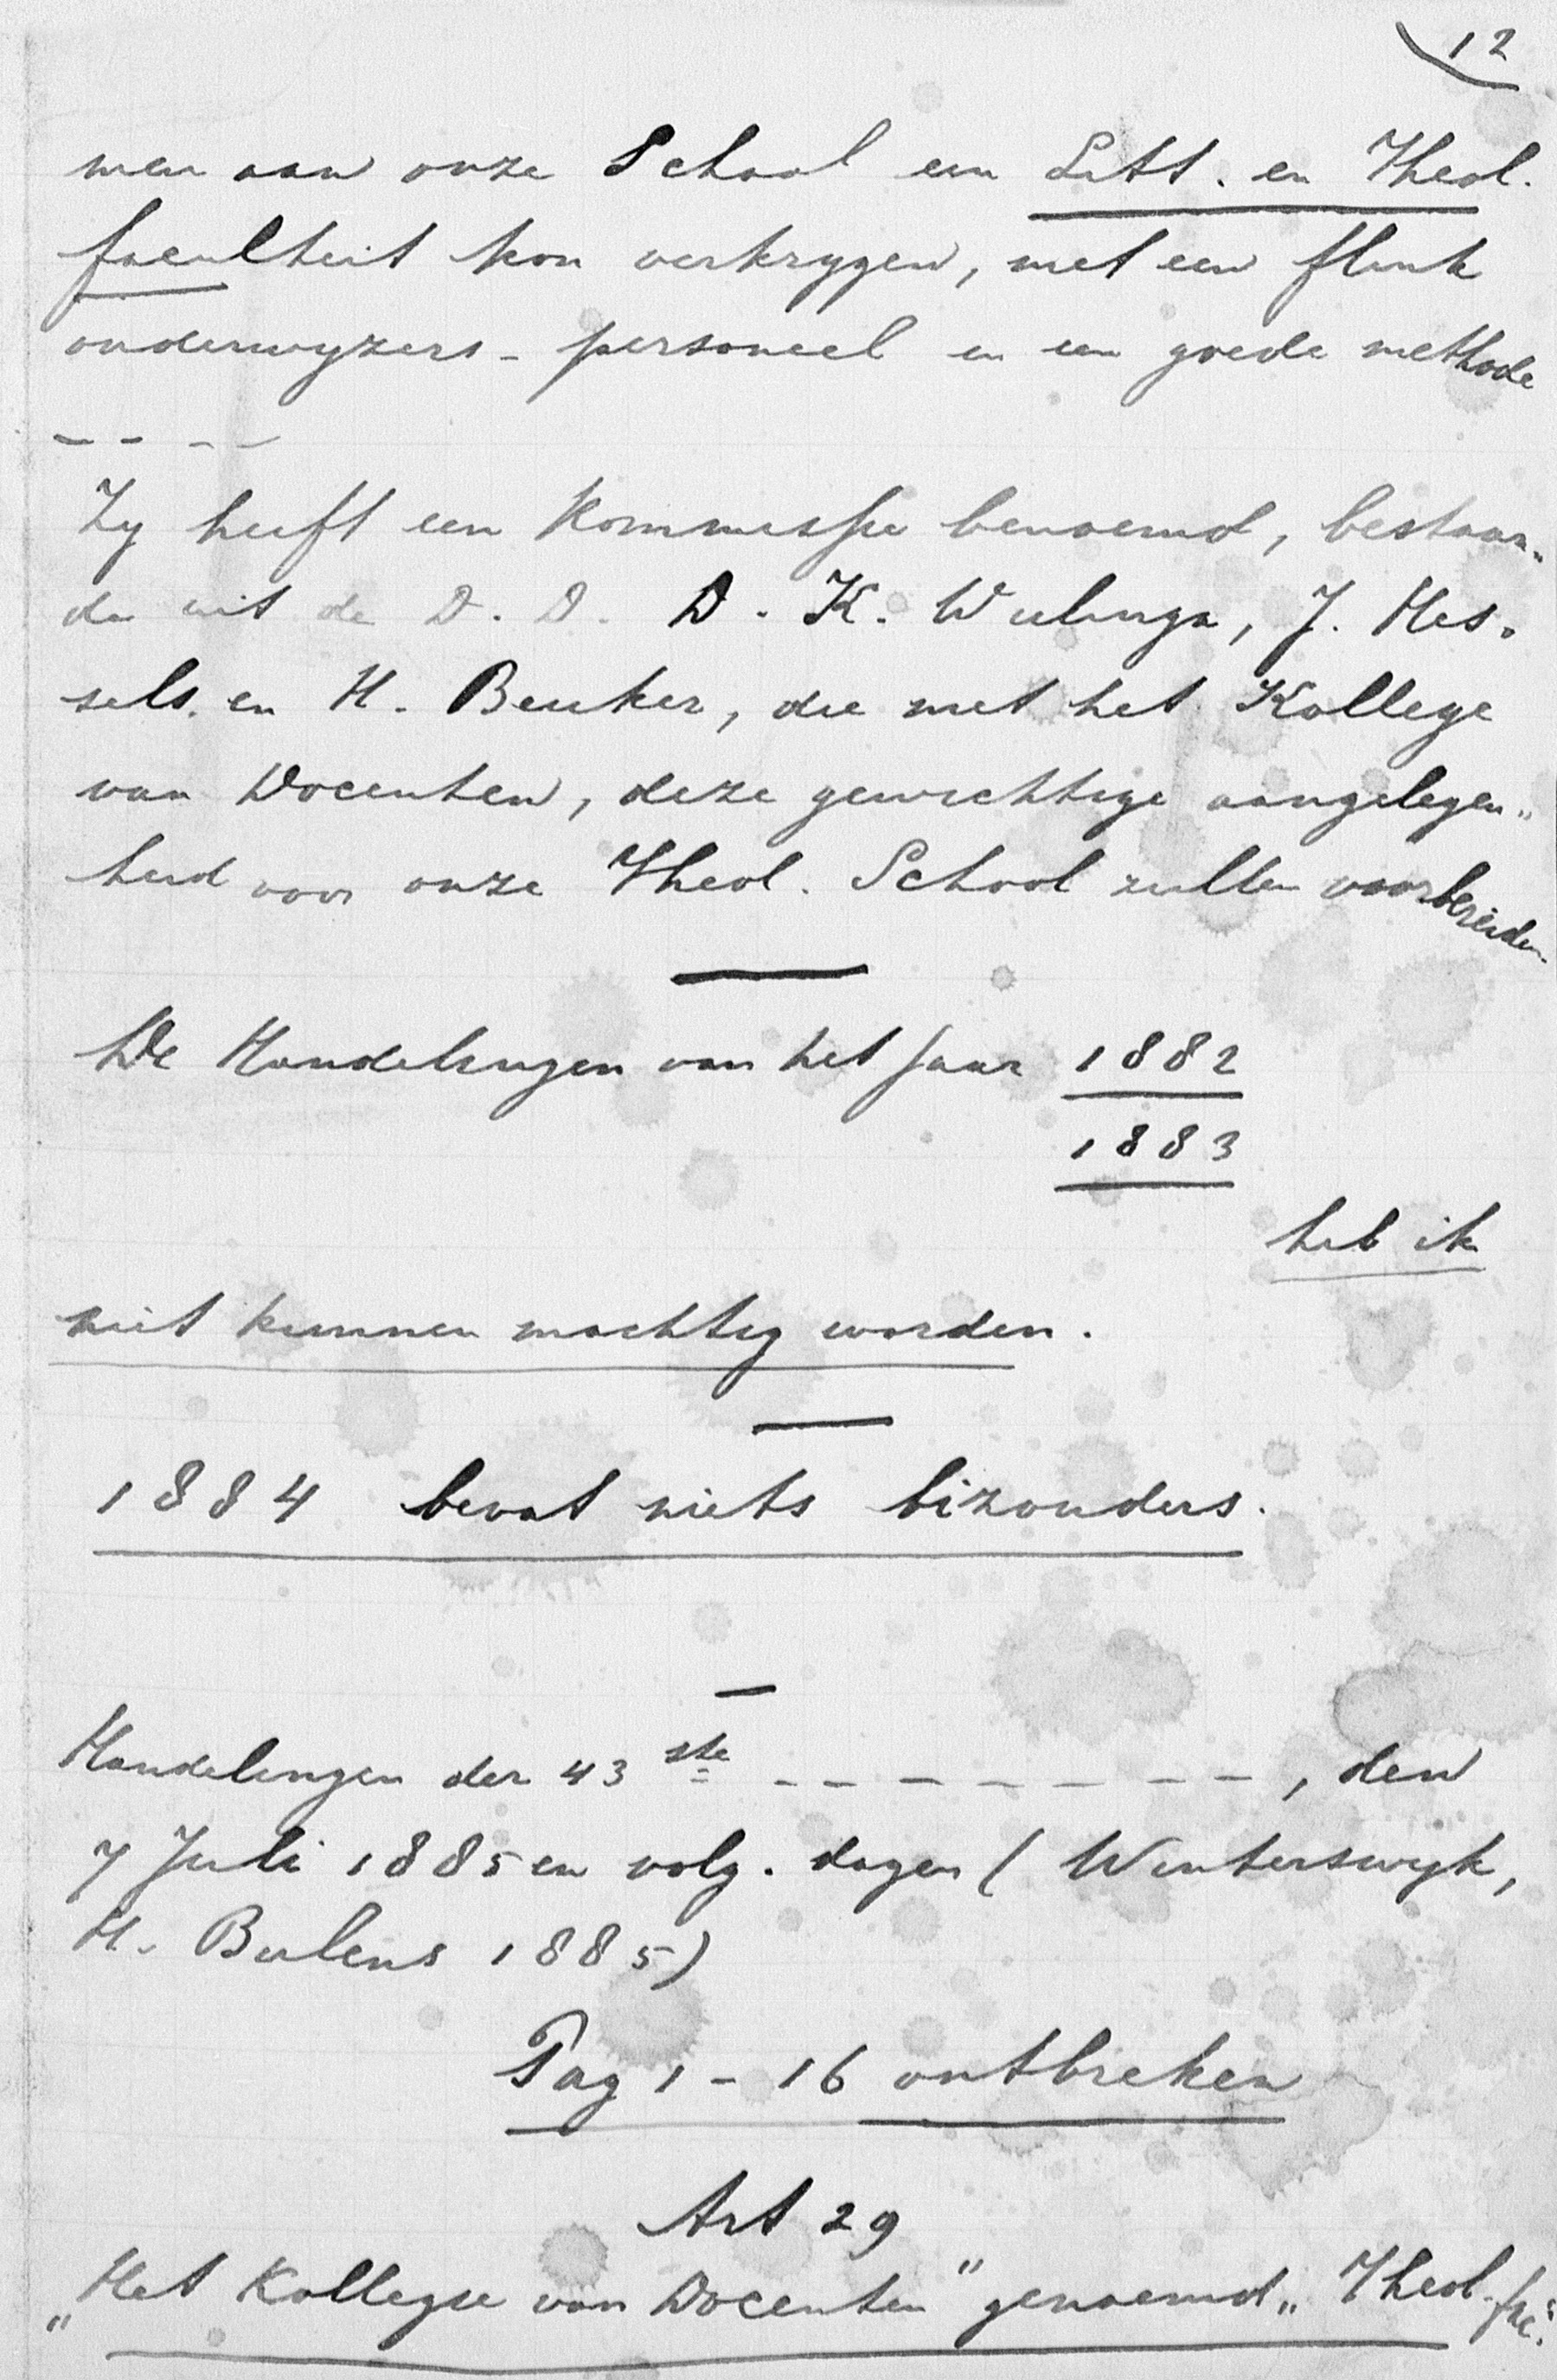 12
men aan onze School een Litt. en Theol.
faculteit kon verkrygen, met een flink
onderwyzers-personeel en een goede methode
- - - -
Zy heeft een Kommissie benoemd, bestaan-
de uit de D. D. D. K. Wielenga, J. Hes-
sels en H. Beuker, die met het Kollege
van Docenten, deze gewichtige aangelegen-
heid voor onze Theol. School zullen voorbereiden.
De Handelingen van het jaar 1882
1883
heb ik
niet kunnen machtig worden.
1884 bevat niets bizonders.
Handelingen der 43ste - - - - - - - -, den
7 Juli 1885 en volg. dagen (Winterswyk,
H. Bulens 1885)
Pag 1 - 16 ontbreken
Art 29
„Het Kollegie van Docenten" genoemd „Theol. fac."